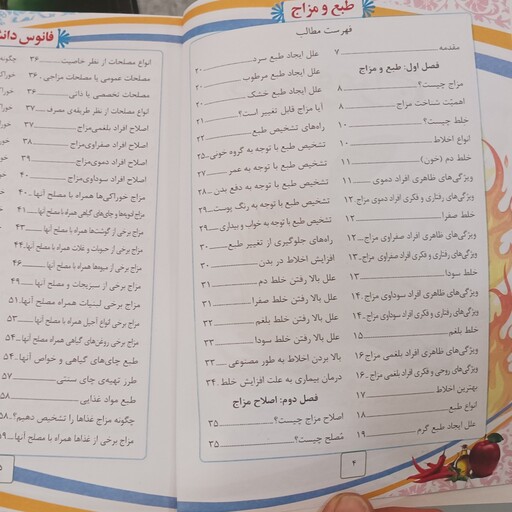 طبع و مزاج
فهرست مطالب
مقدمه ۷
فصل اول: طبع و مزاج
مزاج چیست؟ ۸
اهمیّت شناخت مزاج ۸
خلط چیست؟ ۱۰
انواع اخلاط ۱۰
خلط دم (خون) ۱۱
ویژگی‌های ظاهری افراد دموی ۱۱
ویژگی‌های رفتاری و فکری افراد دموی مزاج ۱۲
خلط صفرا ۱۲
ویژگی‌های ظاهری افراد صفراوی مزاج ۱۲
ویژگی‌های رفتاری و فکری افراد صفراوی مزاج ۱۳
خلط سودا ۱۳
ویژگی‌های ظاهری افراد سوداوی مزاج ۱۴
ویژگی‌های رفتاری و فکری افراد سوداوی مزاج ۱۴
خلط بلغم ۱۵
ویژگی‌های ظاهری افراد بلغمی مزاج ۱۶
ویژگی‌های روحی و فکری افراد بلغمی مزاج ۱۶
بهترین اخلاط ۱۷
انواع طبع ۱۸
علل ایجاد طبع گرم ۱۹
علل ایجاد طبع سرد ۲۰
علل ایجاد طبع مرطوب ۲۰
علل ایجاد طبع خشک ۲۰
آیا مزاج قابل تغییر است؟ ۲۱
راه‌های تشخیص طبع ۲۲
تشخیص طبع با توجه به گروه خونی ۲۵
تشخیص طبع با توجه به عمر ۲۷
تشخیص طبع با توجه به دفع بدن ۲۸
تشخیص طبع با توجه به رنگ پوست ۲۹
تشخیص طبع با توجه به خواب و بیداری ۲۹
راه‌های جلوگیری از تغییر طبع ۳۰
افزایش اخلاط در بدن ۳۰
علل بالا رفتن خلط دم ۳۱
علل بالا رفتن خلط صفرا ۳۱
علل بالا رفتن خلط بلغم ۳۲
علل بالا رفتن خلط سودا ۳۳
بالا بردن اخلاط به طور مصنوعی ۳۳
درمان بیماری به علت افزایش خلط ۳۴
فصل دوم: اصلاح مزاج
اصلاح مزاج چیست؟ ۳۵
مُصلح چیست؟ ۳۵
۴
فانوس
انواع مصلحات از نظر خاصیت ۳۶
مصلحات عمومی یا مصلحات مزاجی ۳۶
مصلحات تخصصی یا ذاتی ۳۶
انواع مصلحات از نظر طریقه‌ی مصرف ۳۷
اصلاح افراد بلغمی‌مزاج ۳۷
اصلاح افراد صفراوی‌مزاج ۳۸
اصلاح افراد دموی‌مزاج ۳۹
اصلاح افراد سوداوی‌مزاج ۴۰
مزاج خوراکی‌ها همراه با مصلح آنها ۴۰
مزاج ادویه‌ها و چای‌های گیاهی همراه با مصلح آنها ۴۱
مزاج برخی از گوشت‌ها همراه با مصلح آنها ۴۳
مزاج برخی از حبوبات و غلات همراه با مصلح آنها ۴۴
مزاج برخی از میوه‌ها همراه با مصلح آنها ۴۶
مزاج برخی از سبزیجات و مصلح آنها ۴۹
مزاج برخی لبنیات همراه مصلح آنها ۵۱
مزاج برخی انواع آجیل همراه با مصلح آنها ۵۳
مزاج برخی روغن‌های گیاهی همراه با مصلح آنها ۵۴
طبع چای‌های گیاهی و خواص آنها ۵۴
طرز تهیه‌ی چای سنتی ۵۷
طبع مواد غذایی ۵۸
چگونه مزاج غذاها را تشخیص دهیم؟ ۵۸
مزاج برخی از غذاها همراه با مصلح آنها ۵۹